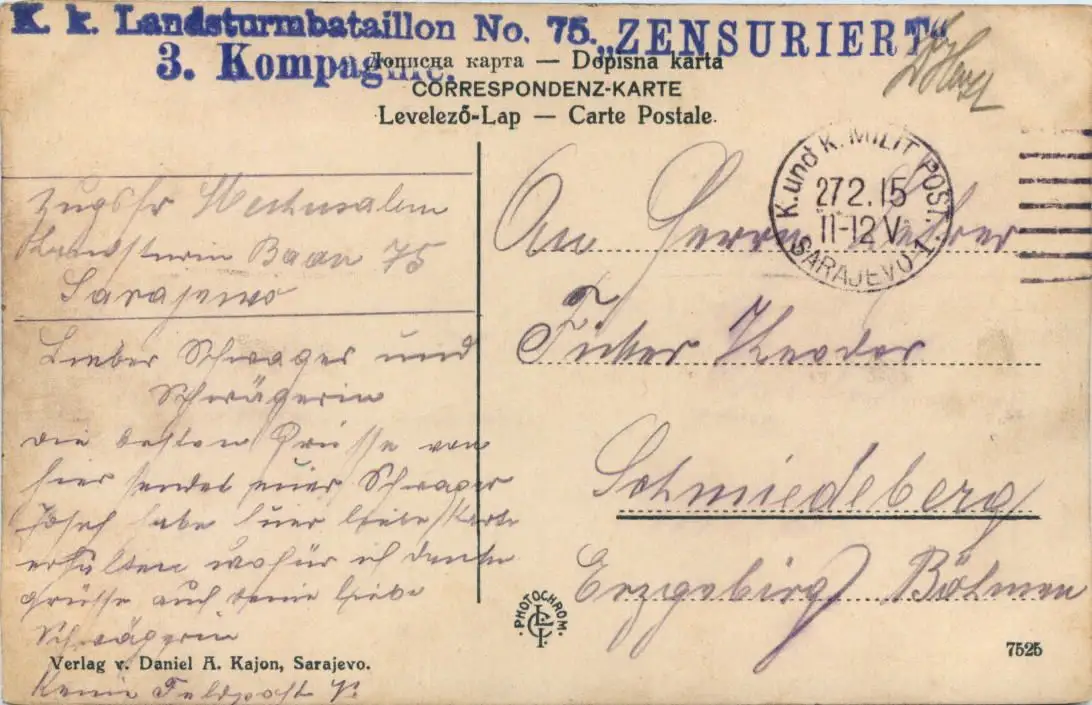 K. k. Landsturmbataillon No. 75. „ZENSURIERT“
3. Kompagnie.
Дописна карта — Dopisna karta
CORRESPONDENZ-KARTE
Levelező-Lap — Carte Postale.
K. und K. MILIT. POST.
27 2. 15
11-12 V.
SARAJEVO 1.
Zugsfr
Landsturm Baon 75
Sarajewo
Lieber Schwager und
Schwägerin
die besten Grüsse von
hier sendet euer Schwager
Josef habe euer liebe Karte
erhalten wofür ich danke
grüsse auch deine liebe
Schwägerin
Keine Feldpost
An Herrn Lehrer
Schmiedeberg
Erzgebirg Böhmen
Verlag v. Daniel A. Kajon, Sarajevo.
PHOTOCHROM.
7525